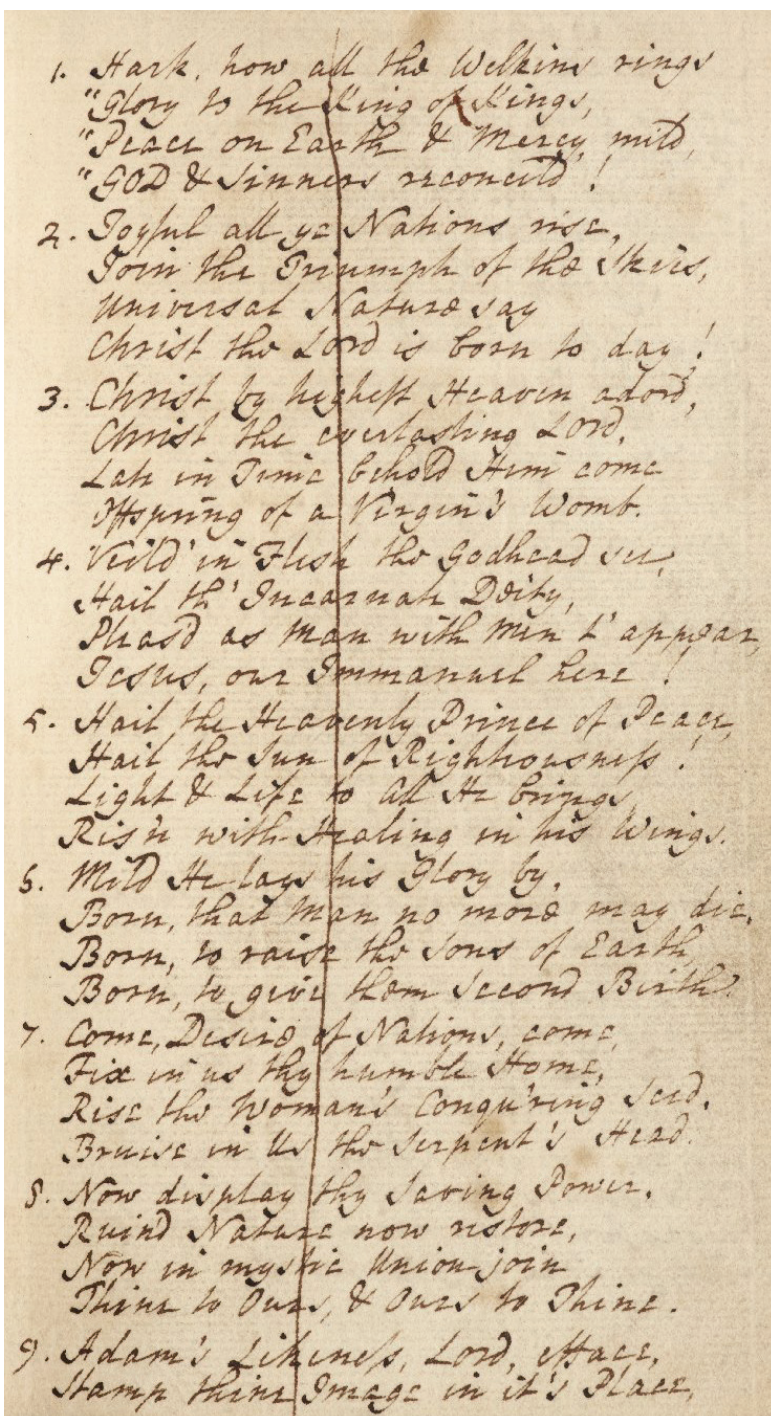 1. Hark, how all the Welkine rings
"Glory to the King of Kings,
"Peace on Earth & Mercy mild,
"GOD & Sinners reconcil'd!
2. Joyful all ye Nations rise,
Join the Triumph of the Skies,
Universal Nature say
Christ the Lord is born to day!
3. Christ by highest Heaven ador'd,
Christ the everlasting Lord,
Late in Time behold Him come
Offspring of a Virgin's Womb.
4. Veil'd in Flesh the Godhead see,
Hail th' Incarnate Deity,
Pleas'd as Man with Men t' appear,
Jesus, our Immanuel here!
5. Hail the Heavenly Prince of Peace,
Hail the Sun of Righteousness!
Light & Life to All He brings,
Ris'n with Healing in his Wings.
6. Mild He lays his Glory by,
Born, that Man no more may die,
Born, to raise the Sons of Earth,
Born, to give them Second Birth.
7. Come, Desire of Nations, come,
Fix in us thy humble Home,
Rise the Woman's Conqu'ring Seed,
Bruise in Us the Serpent's Head.
8. Now display thy Saving Power,
Ruin'd Nature now restore,
Now in mystic Union join
Thine to Ours, & Ours to Thine.
9. Adam's Likeness, Lord, efface,
Stamp thine Image in it's Place,